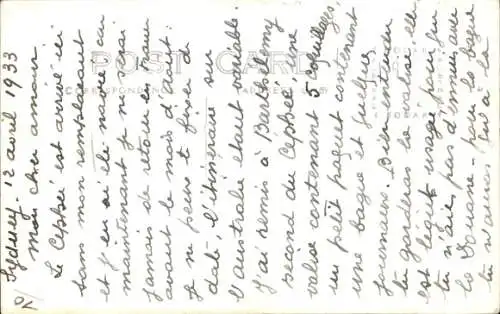 Sydney. 12 avril 1933
Mon cher amour.
Le Céphée est arrivé ici
sans mon remplaçant
et j'en ai été navré car
maintenant je ne serai
jamais de retour en France
avant le mois d'août.
Je ne peux te fixer de
date, l'itinéraire sur
l'australie étant variable.
J'ai remis à Barthélemy
second du Céphée une
valise contenant 5 coquillages,
un petit paquet contenant
une bague et quelques
journaux. Bien entendu
tu garderas la valise elle
est légitime usagée pour que
tu n'aie pas d'ennuis avec
la Douane. pour la bague
tu n'auras qu'à la
POST CARD
CORRESPONDENCE
ADDRESS